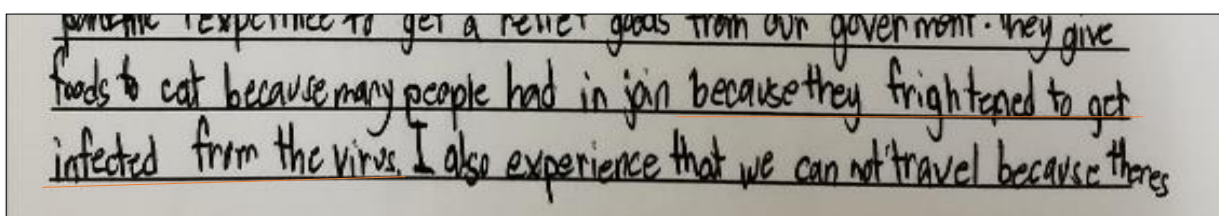 pandemic I experince to get a relief goods from our goverment. they give
foods to eat because many people had in join because they frightened to get
infected from the virus. I also experience that we can not travel because theres